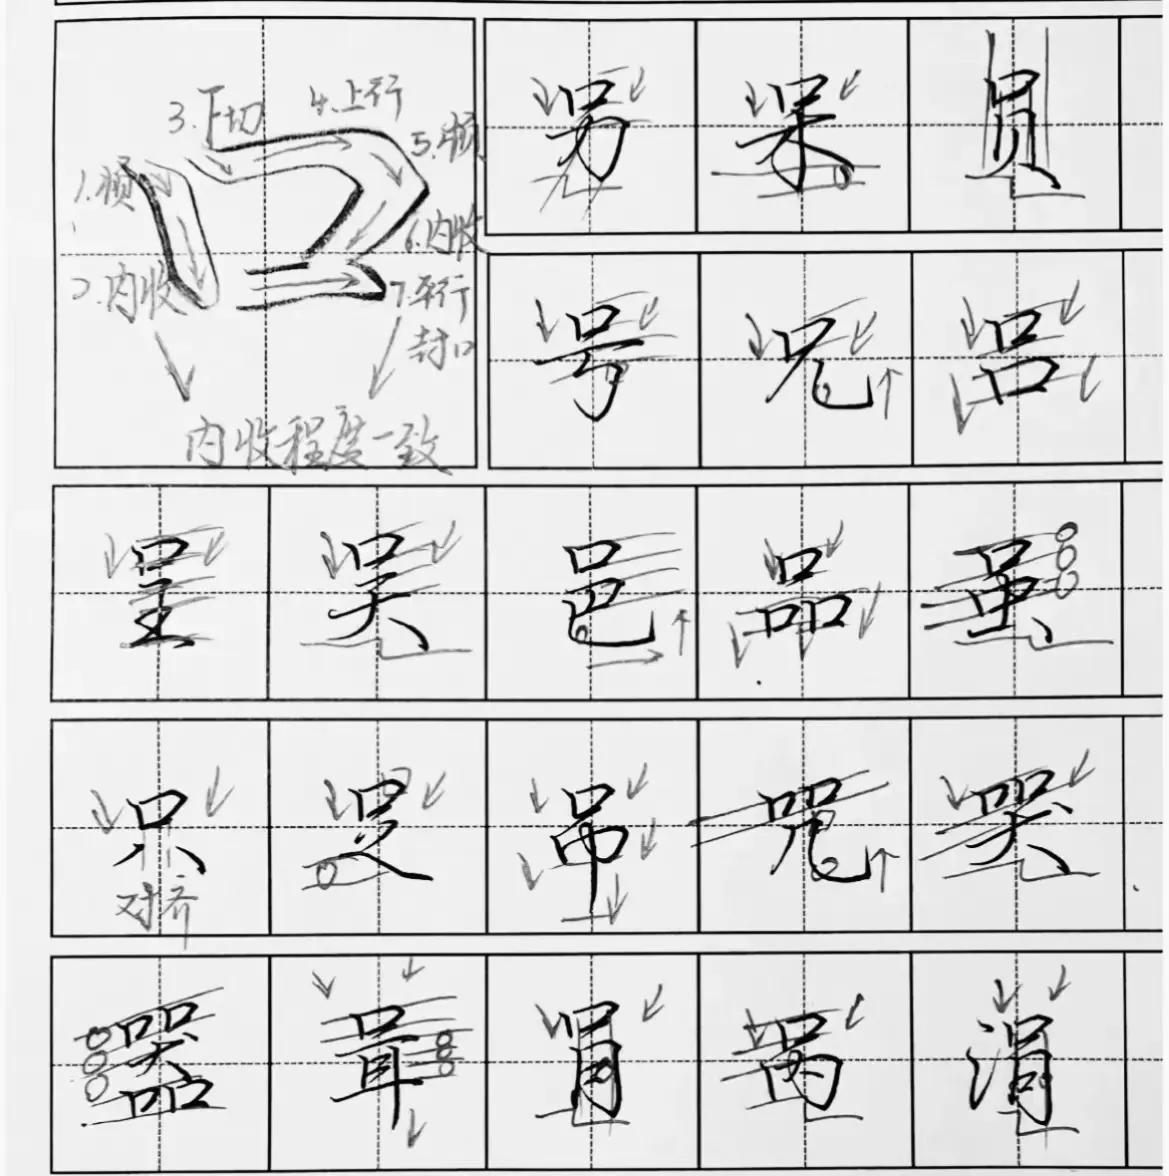 3.下切 4.上行
5.顿
1.顿
6.内收
2.内收
7.平行
封口
内收程度一致
另 呆 员
号 兄 吕
呈 吴 邑 品 虽
只 足 吊 咒 哭
对齐
器 咠 肙 呙 涓